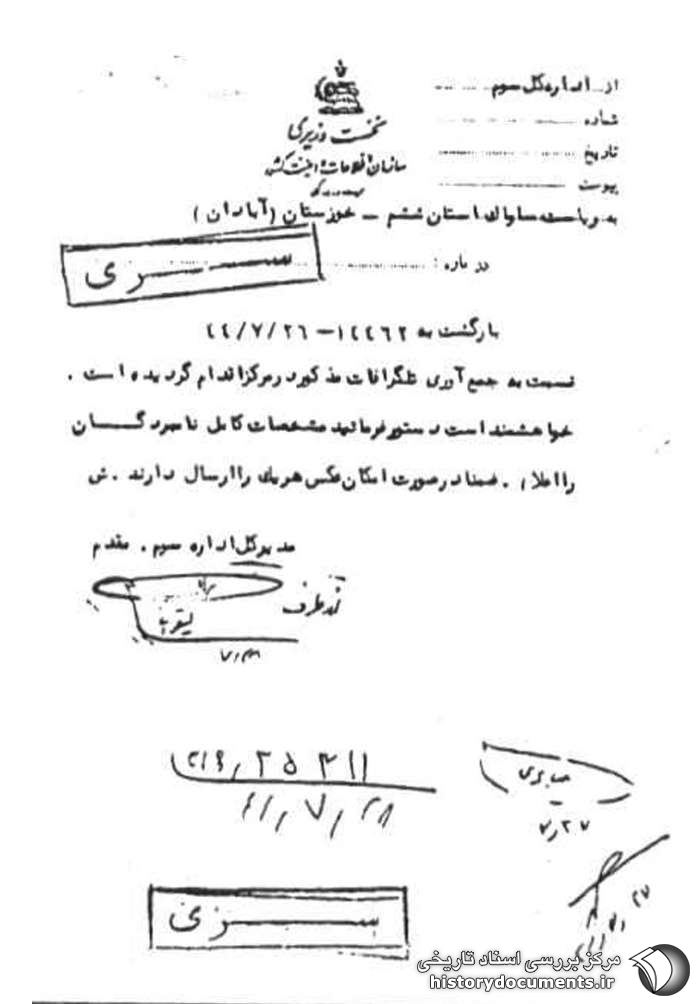 از اداره کل سوم
شماره
تاریخ
پیوست
نخست وزیری
سازمان اطلاعات و امنیت کشور
به ریاست ساواک استان ششم – خوزستان (آبادان)
درباره :
سری
بازگشت به ۱۴۴۶۲–۴۴/۷/۲۶
نسبت به جمع آوری تلگرافات مذکور در مرکز اقدام گردیده است .
خواهشمند است دستور فرمائید مشخصات کامل نامبردگان
را اعلام . ضمنا در صورت امکان عکس هریک را ارسال دارند . ش
مدیر کل اداره سوم . مقدم
از طرف
صابری
۲۷/۷
سری
مرکز بررسی اسناد تاریخی
historydocuments.ir